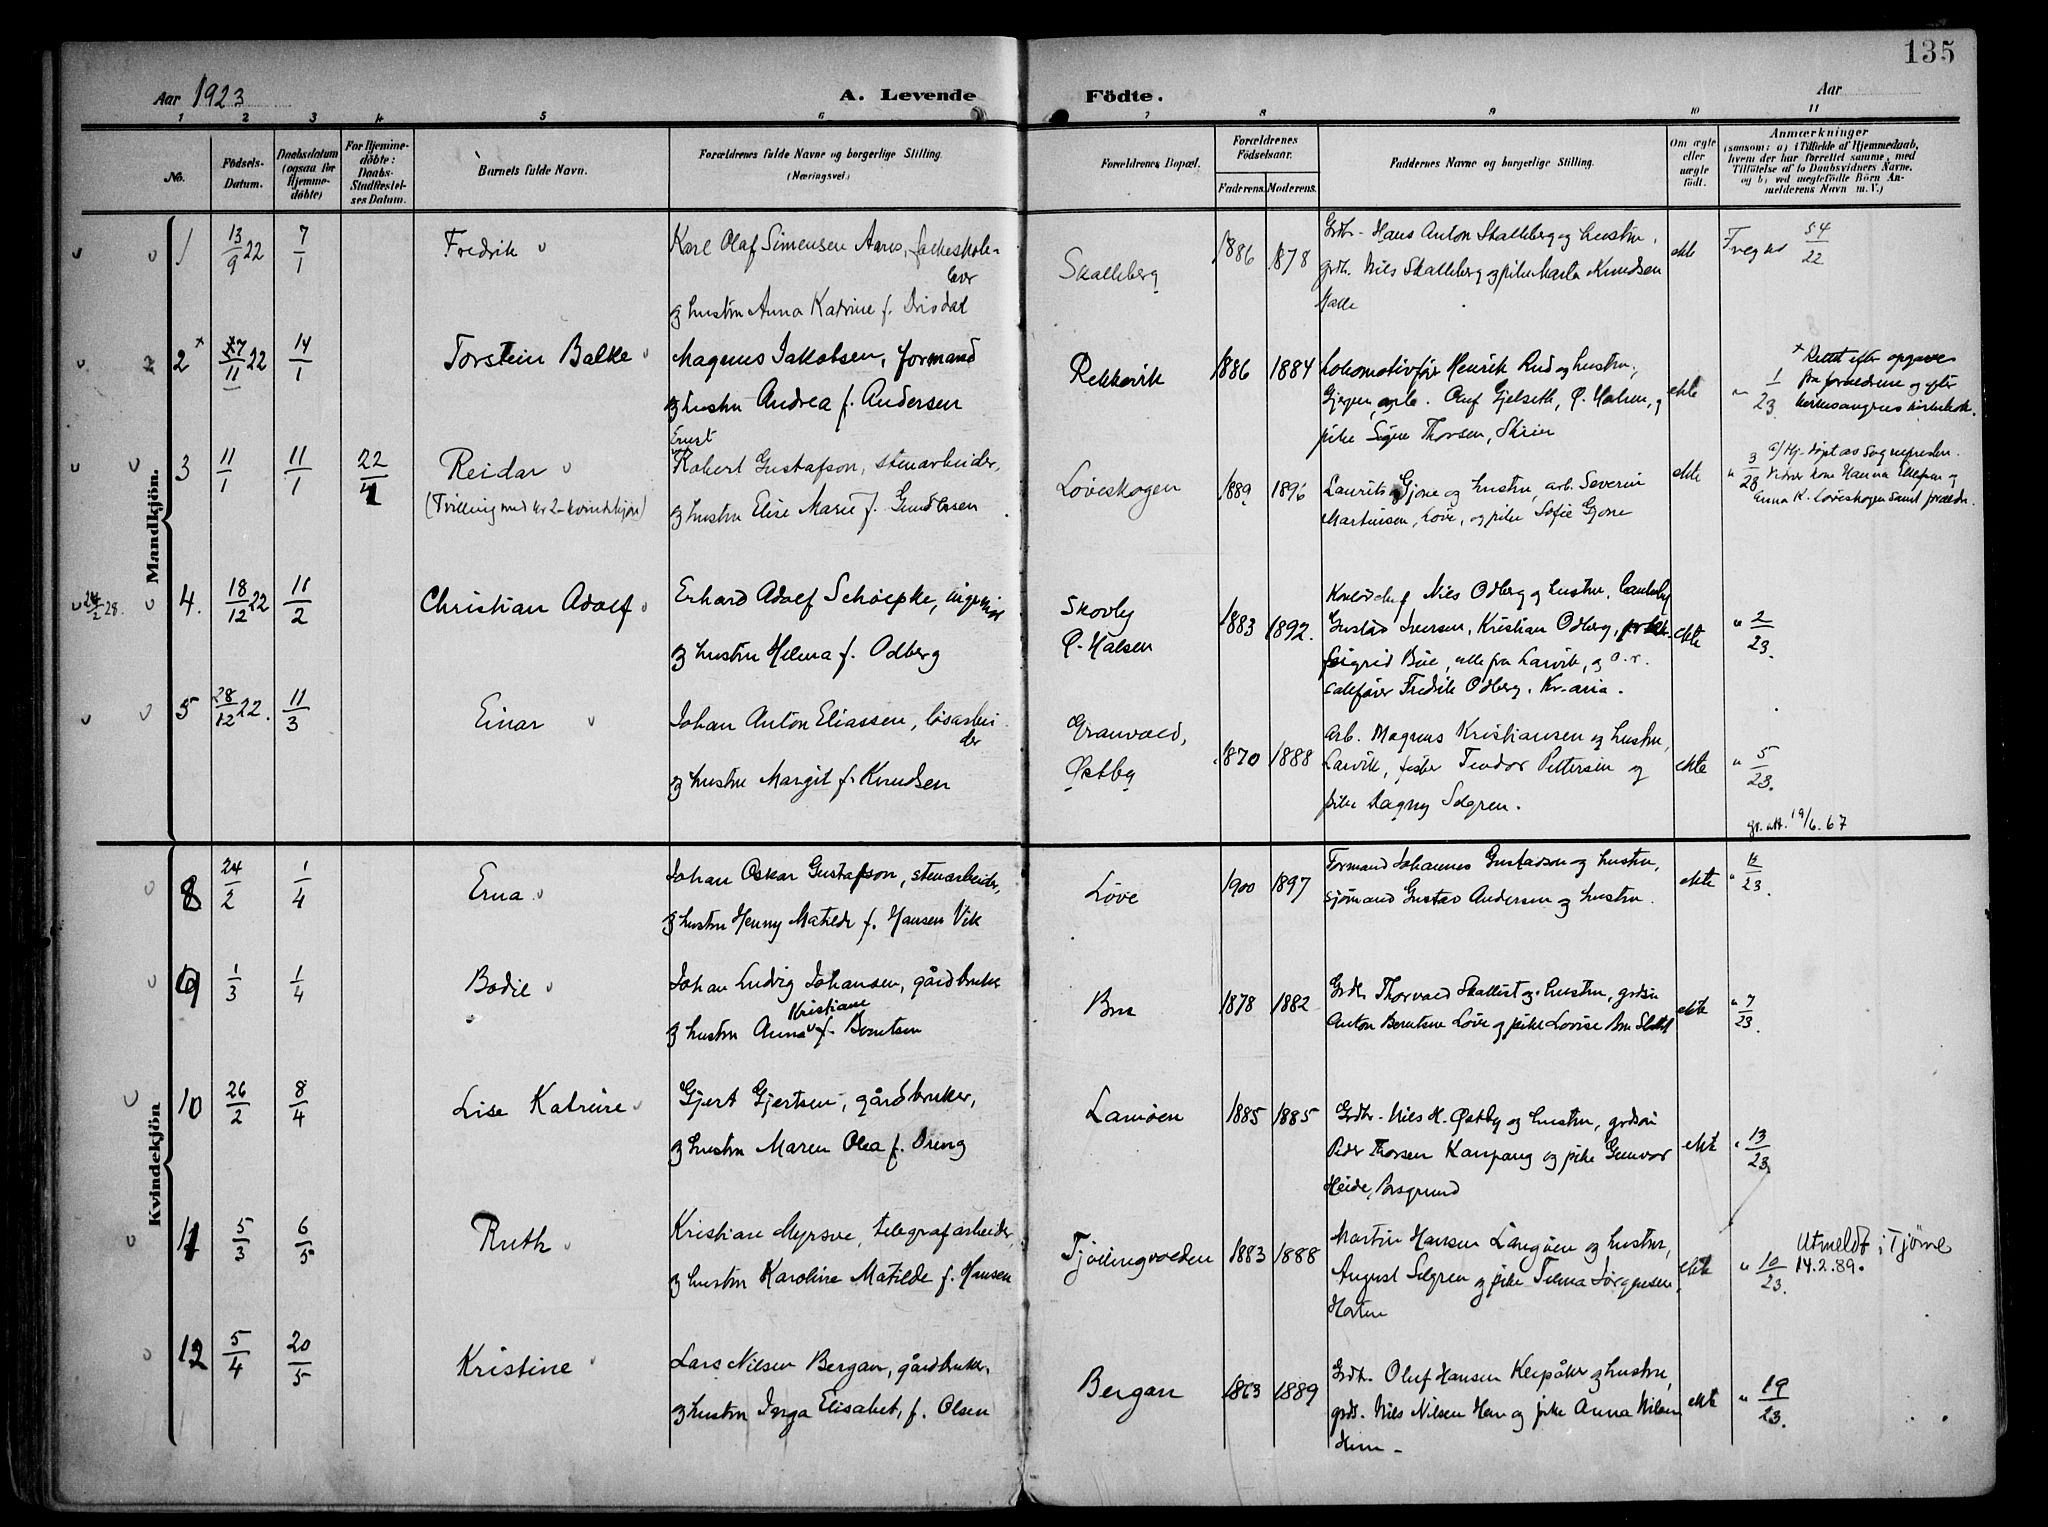 135
Aar 1923
A. Levende
Födte.
Aar
1 2 3 4 5 6 7 8 9 10 11
No.
Födsels-
Datum.
Daabsdatum
(ogsaa for
Hjemme-
döbte)
For Hjemme-
döbte:
Daabs-
Stadfæstel-
ses Datum.
Barnets fulde Navn.
Forældrenes fulde Navne og borgerlige Stilling.
(Næringsvei)
Forældrenes Bopæl.
Forældrenes
Födselsaar.
Faderens. Moderens.
Faddernes Navne og borgerlige Stilling.
Om ægte
eller
uægte
födt.
Anmærkninger
(saasom: a) i Tilfælde af Hjemmedaab,
hvem der har forrettet samme, med
Tilföielse af to Daabsvidners Navne,
og b) ved uægtefödte Börn An-
melderens Navn m. V.)
Mandkjön.
1 13/9 22 7/1 Fredrik Karl Olaf Simensen Aares, folkeskole-
og hustru Anna Katrine f.
Skalleberg 1886 1878
Grdbr. Hans Anton Skalleberg og hustru,
grdb. Nils Skalleberg og pike Marta Knudsen
ekte 54/22
2 x 27/11 22 14/1 Torstein Balke Magnus Jakobsen, formand
og hustru Andrea f. Andersen
Rekkevik 1886 1884
Lokomotivfør Henrik Rud og hustru,
Oluf Gjelseth, Ø. Halsen, og
pike Signe Thorsen, Skien
ekte 1/23
x Rettet efter opgave
fra forældrene og efter
3 11/1 11/1 22/4 Reidar
(Tvilling med nr 2 - kvindekjøn)
Ernst
Robert Gustafson, stenarbeider,
og hustru Elise Marie f. Gundersen
Løveskogen 1889 1896
Laurits Gjone og hustru, arb. Severin
Martinsen, Løve, og pike Sofie Gjone
ekte " 3/23
a/ Hj. døpt av Sognepresten.
Anna K. Løveskogen samt forældr.
24/2 28.
4. 18/12 22 11/2 Christian Adolf Erhard Adolf Schöepke, ingeniør
og hustru Helma f. Odberg
Skovly
Ø. Halsen
1883 1892.
Nils Odberg og hustru,
Gustav Iversen, Kristian Odberg,
Sigrid Bue, alle fra Larvik, og
Fredrik Odberg, Kr.ania.
ekte " 2/23.
5 28/12 22. 11/3 Einar Johan Anton Eliassen, løsarbei-
der
og hustru Margit f. Knudsen
Granvold,
Østby
1870 1888
Arb. Magnus Kristiansen og hustru,
Larvik, fisker Teodor Pettersen og
pike Dagny Solgren.
ekte " 5/23.
gr. att. 19/6. 67
Kvindekjön
8 24/2 1/4 Erna Johan Oskar Gustafson, stenarbeider,
og hustru Henny Matilde f. Hansen Vik
Løve 1900 1897
Formand Johannes Gustavson og hustru,
sjømand Gustav Andersen og hustru.
ekte
9 1/3 1/4 Bodil Johan Ludvig Johansen, gårdbruker
Kristiane
og hustru Anna f. Berntsen
Bru 1878 1882
Grdb. Thorvald Skallist og hustru, grdsø
Anton Berntsen Løve og pike Lovise Bru
ekte " 7/23.
10 26/2 8/4 Lise Katrine Gjert Gjertsen, gårdbruker,
og hustru Maren Olea f. Dreng
Lamøen 1885 1885
Grdbr. Nils H. Østby og hustru, grdsø
Peder Thorsen Kaupang og pike Gunvor
Heide, Porsgrund
ekte 13/23
11 5/3 6/5 Ruth Kristian Myrsve, telegrafarbeider,
og hustru Karoline Matilde f. Hansen
Tjøllingvolden 1883 1888
Martin Hansen Langøen og hustru,
August Solgren og pike Telma Jørgensen,
Horten
ekte " 10/23.
Utmeldt i Tjøme
14.2.89.
12 5/4 20/5 Kristine Lars Nilsen Bergan, gårdbruker,
og hustru Inga Elisabet, f. Olsen
Bergan 1863 1889
Grdb. Oluf Hansen Klepåker og hustru,
grdb. Nils Nilsen Hem og pike Anna Nilsen
Hem -
ekte " 19/23.